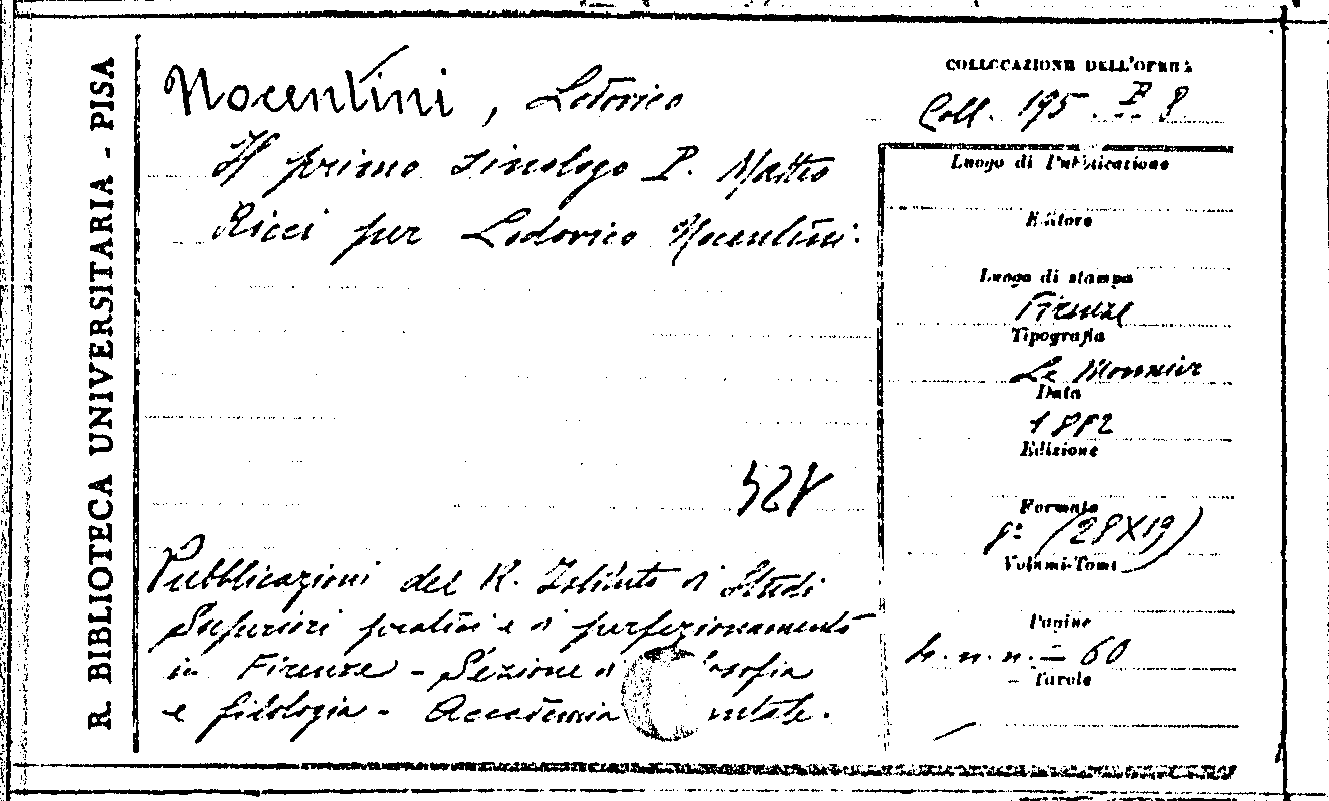 R. BIBLIOTECA UNIVERSITARIA - PISA
Nocentini, Lodovico
Il primo sinologo P. Matteo
Ricci per Lodovico Nocentini.
528
Pubblicazioni del R. Istituto di Studi
Superiori pratici e di perfezionamento
in Firenze - Sezione di losofia
e filologia - Accademia ntale.
COLLOCAZIONE DELL'OPERA
Coll. 195. P. 8
Luogo di Pubblicazione
Editore
Luogo di stampa
Firenze
Tipografia
Le Monnier
Data
1882
Edizione
Formato
8º (28X19)
Volumi-Tomi
Pagine
n.n. - 60
- Tavole